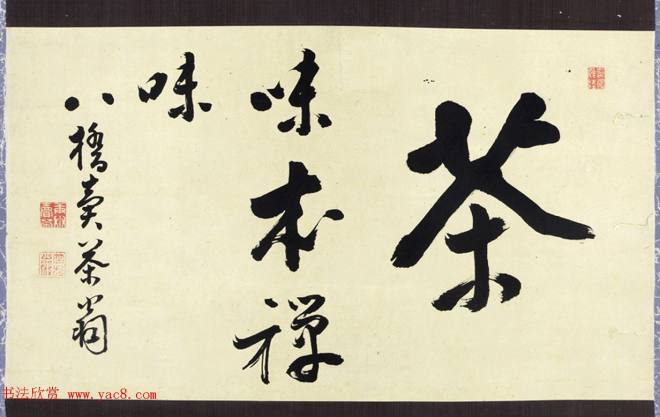 茶
味本禅
味
八橋売茶翁
书法欣赏 www.yac8.com